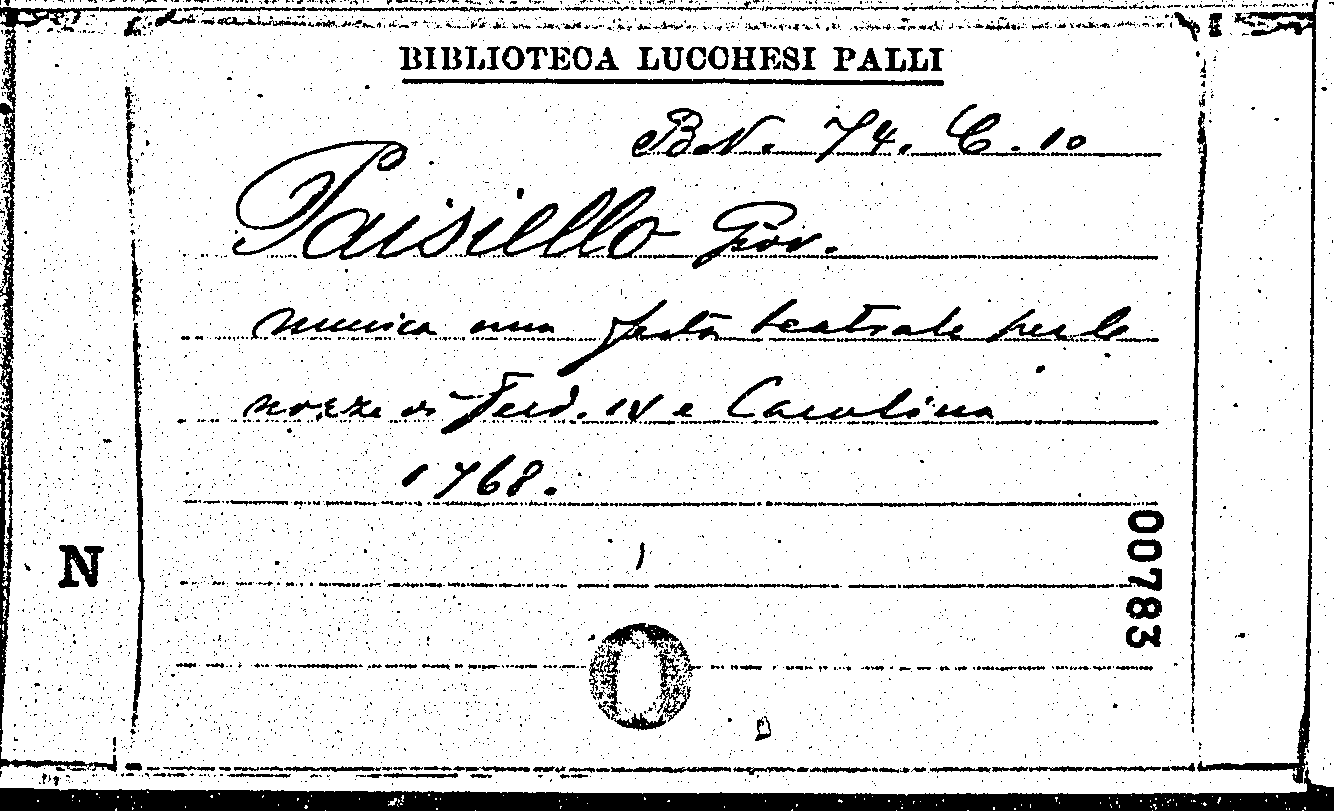 BIBLIOTECA LUCCHESI PALLI
B.N. 74. C. 10
Paisiello Giov.
musica una festa teatrale per le
nozze di Ferd. IV e Carolina
1768.
N
00783